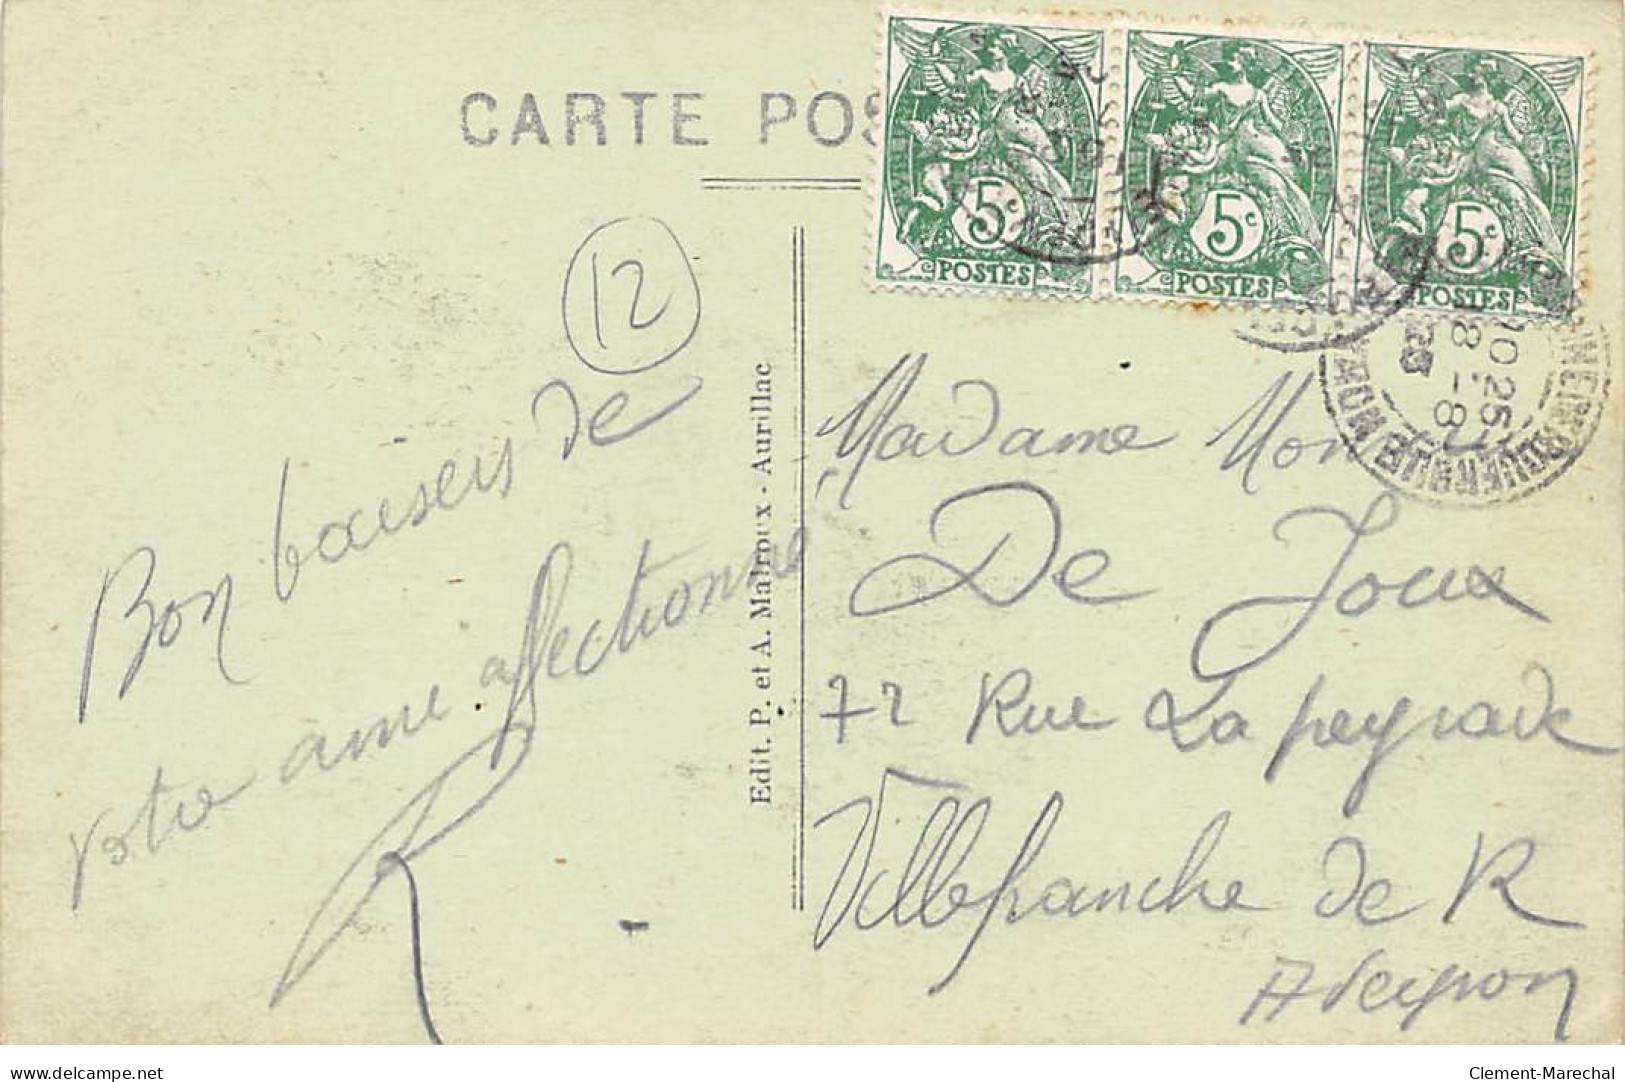 CARTE POS
5c
POSTES
5c
POSTES
5c
POSTES
12
Bon baisers de
votre amie affectionné
Edit. P. et A. Malroux - Aurillac
Madame Mon
De Joux
72 Rue Lapeyrade
Villefranche de R
Aveyron
delcampe.net
Clement-Marechal